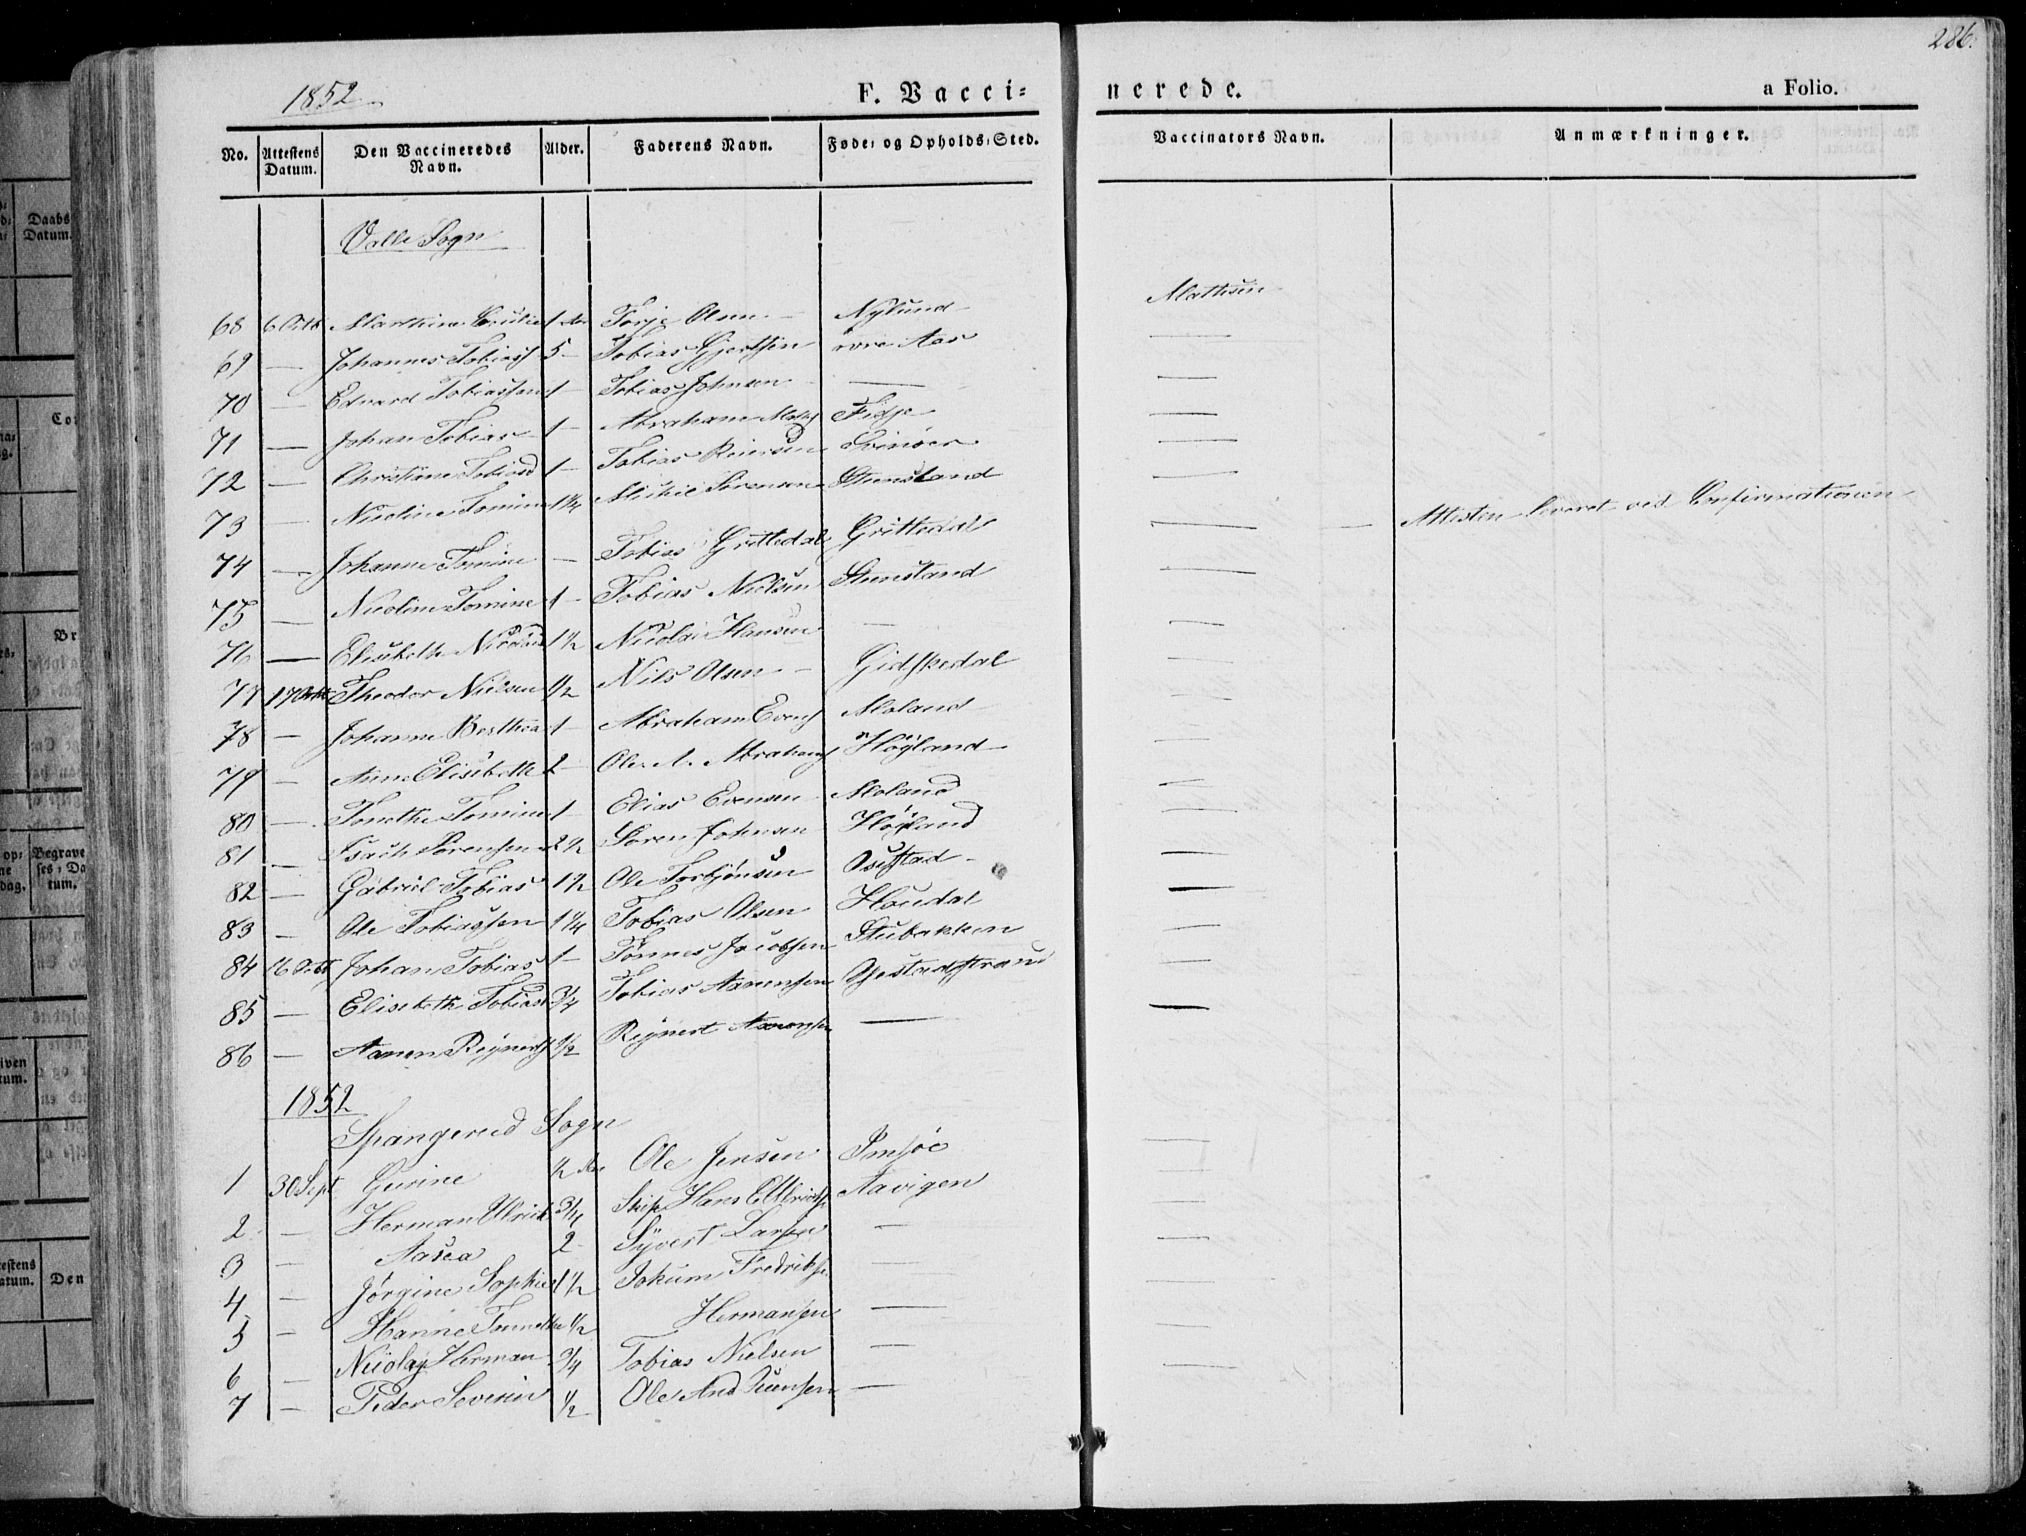 286.
1852
F. Vacci= nerede. a Folio.
No. Attestens Datum. Den Vaccineredes Navn. Alder. Faderens Navn. Føde= og Opholds=Sted. Vaccinators Navn. Anmærkninger.
Valle Sogn
68 6 Octb Marthine 1 Torje Olsen Nylund Mathisen
69 — Johannes Tobiass 5 — Tobias Gjertsen øvre Aas —
70 — Edvard Tobiassen 1 — Tobias Johnsen — —
71 — Johan Tobias 1 — Abraham Fidje —
72 — Christine Tobiasd 1 — Tobias Reiersen —
73 — Nicoline Tomine 1 1/4 Michil Sørensen Stensland —
74 — Johanne Tomine — Tobias Grittedal Grittedal — — Attesten leveret ved Confirmationen
75 — Nicoline Tomine 1 — Tobias Nielsen Stensland —
76 — Elisabeth 1 1/2 Nicolai Hansen — —
77 17 Octb Theodor Nielsen 1/2 Nils Olsen — Gidskedal —
78 — Johanne Berthea 1 — Abraham Evens Moland —
79 — Anne Elisabeth 2 — Ole A. Abrahams Høyland —
80 — Tonethe Tomine 1 — Elias Evensen Moland —
81 — Isach Sørensen 2 1/2 Søren Johnsen Høyland —
82 — Gabriel Tobias 1 1/2 Ole Torbjønsen Osestad —
83 — Ole Tobiassen 1 1/4 Tobias Olsen Houdal —
84 16 Octb Johan Tobias 1 — Tønnes Jacobsen Stubakken —
85 — Elisabeth Tobiasd 3/4 Tobias Aanensen —
86 — Aanen Reynerts 1/2 Reynert Aanensen — —
1852
Spangereid Sogn
1 30 Sept Gurine 1/2 Ole Jensen Imsøe —
2 — Herman Ulrick 3/4 Skip Hans Ellbrichs Aavigen —
3 — Aasea 2 Syvert Larsen — —
4 — Jørgine Sophie 1 1/2 Jokum Fredriks — —
5 — Hanne 1/2 Hermansen — —
6 — Nicolay Herman 3/4 Tobias Nielsen — —
7 — Peder Severin 1/2 Ole —